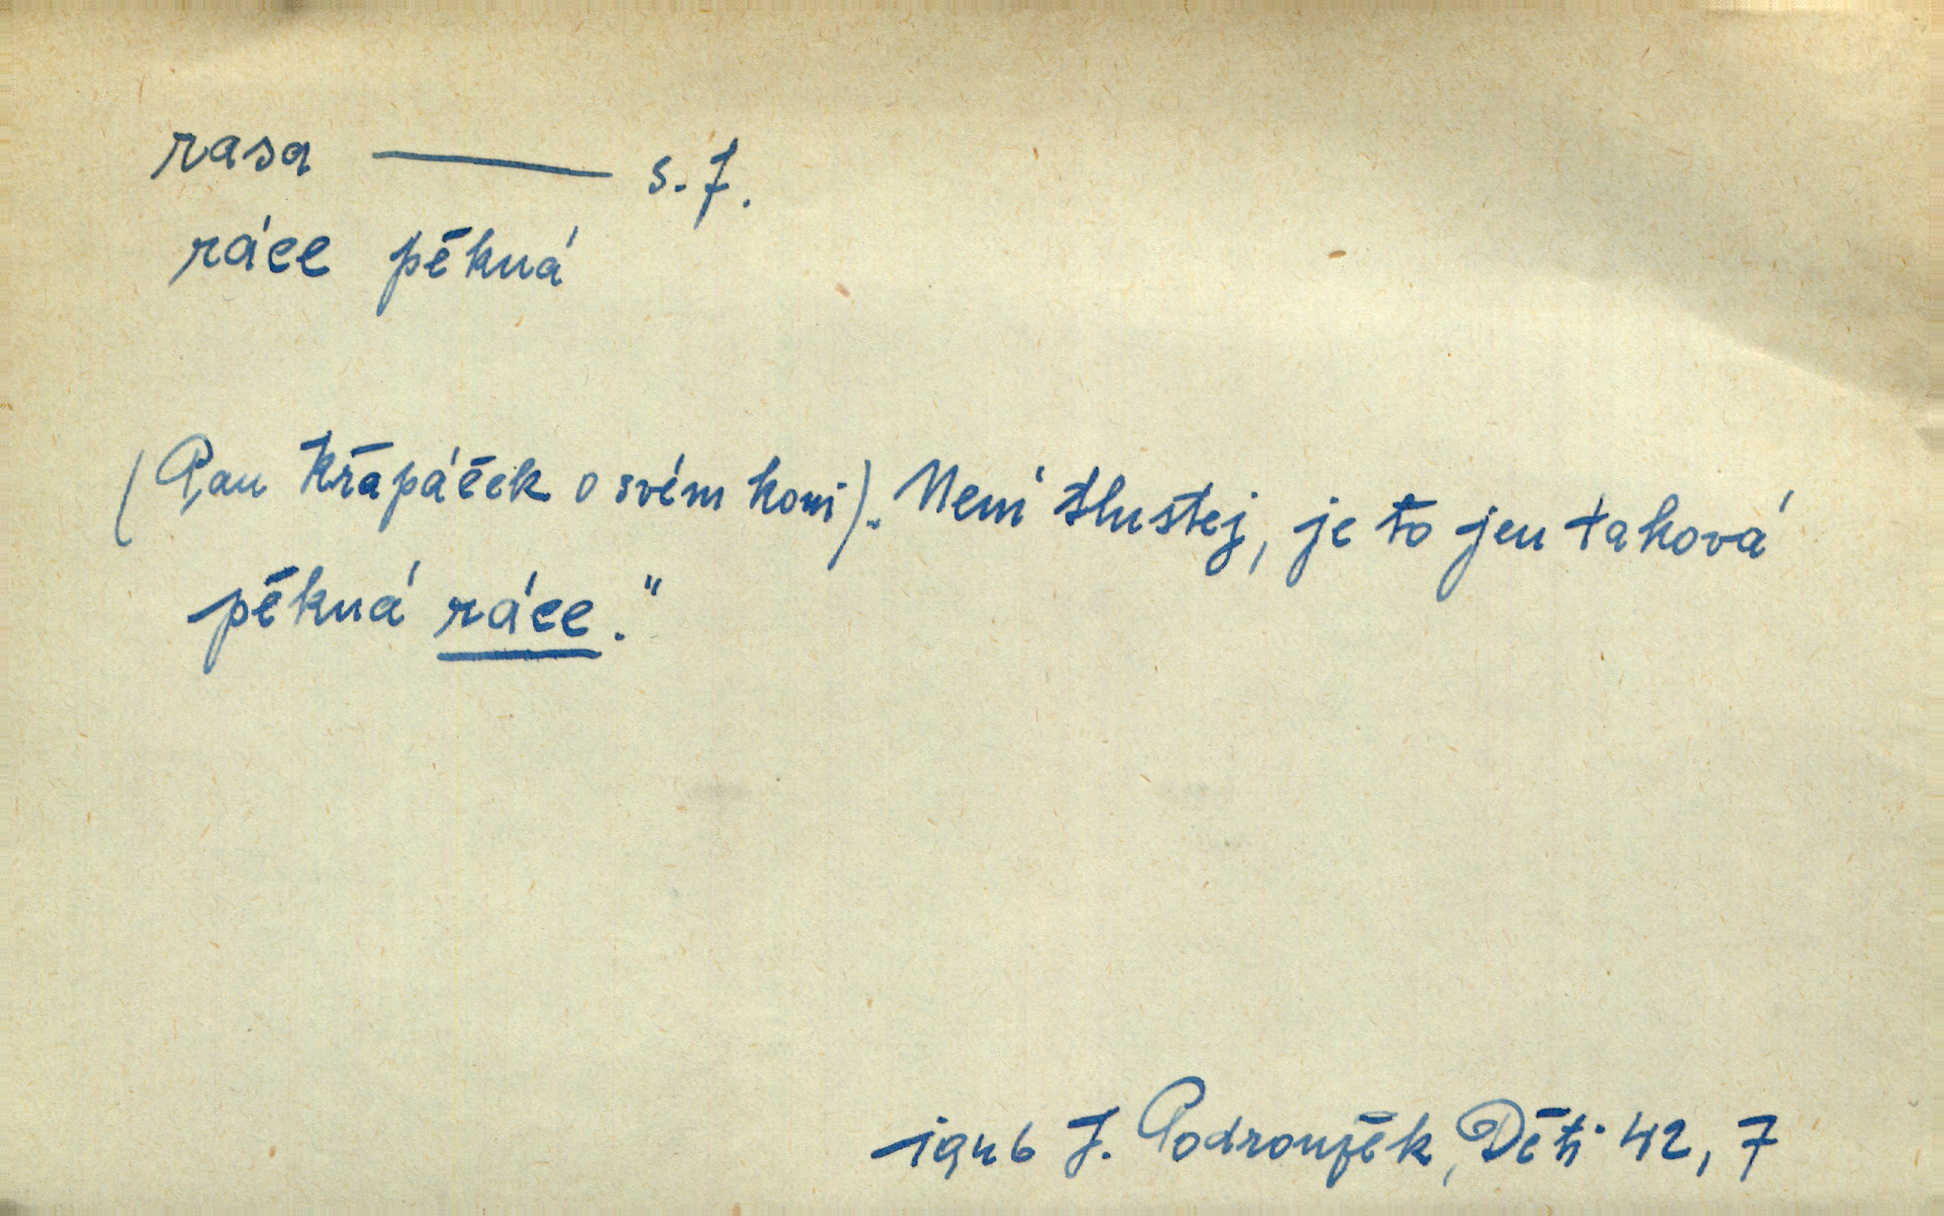 rasa — s. f.
ráce pěkná
(Pan Křapáček o svém koni). Není tlustej, je to jen taková
pěkná ráce."
1946 J. Podroužěk, Děti 42, 7